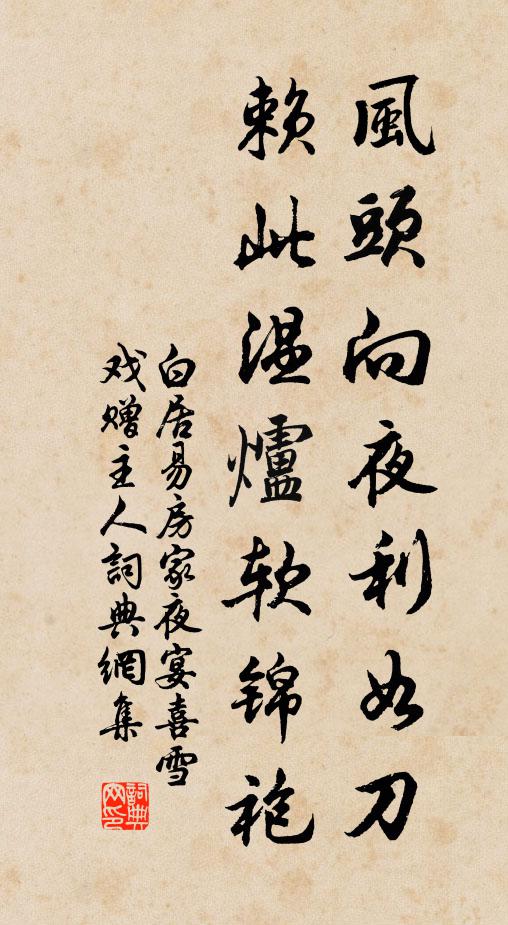 風頭向夜利如刀
賴此温爐软锦袍
白居易房家夜宴喜雪
戏赠主人詞典網集
詞典网印